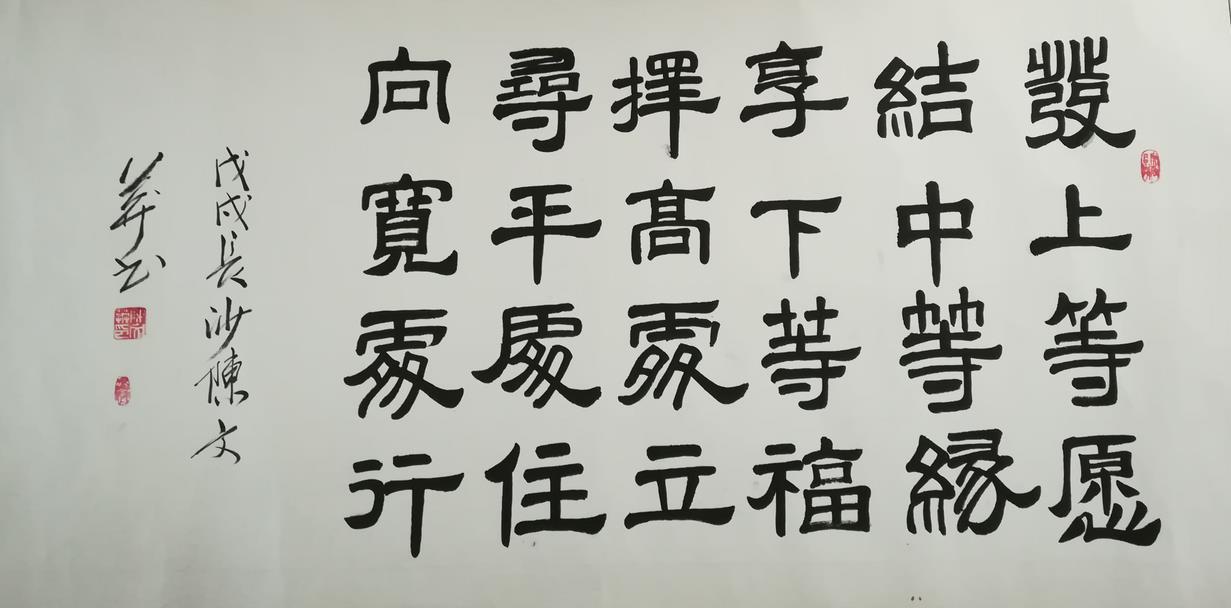 發上等愿
結中等緣
享下等福
擇高處立
尋平處住
向寬處行
戊戌長沙陳文
葬书